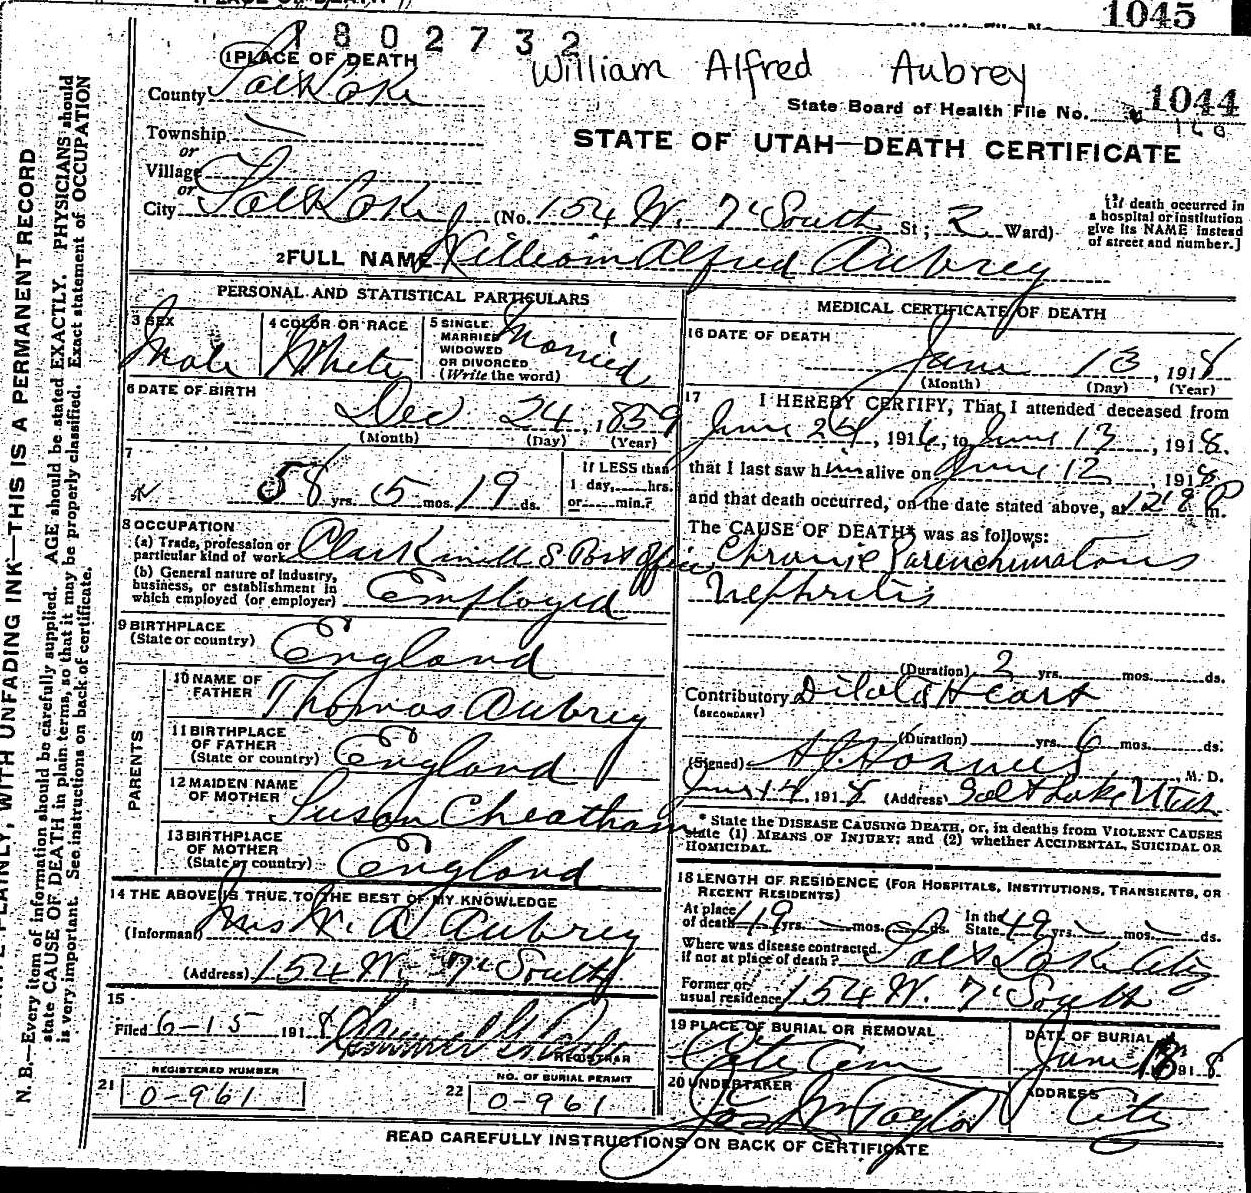 1045
1802732
William Alfred Aubrey
State Board of Health File No. 1044
160
STATE OF UTAH—DEATH CERTIFICATE
1 PLACE OF DEATH
County Salt Lake
Township
or
Village
or
City Salt Lake (No. 154 W. 7' South St; 2 Ward)
[If death occurred in
a hospital or institution
give its NAME instead
of street and number.]
2 FULL NAME William Alfred Aubrey
PERSONAL AND STATISTICAL PARTICULARS
3 SEX
Male
4 COLOR OR RACE
White
5 SINGLE
MARRIED
WIDOWED
OR DIVORCED
(Write the word)
Married
6 DATE OF BIRTH
Dec 24, 1859
(Month) (Day) (Year)
7
58 yrs. 5 mos. 19 ds.
If LESS than
1 day, hrs.
or min.?
8 OCCUPATION
(a) Trade, profession or
particular kind of work Clerk in U S Post Office
(b) General nature of industry,
business, or establishment in
which employed (or employer) Employed
9 BIRTHPLACE
(State or country) England
PARENTS
10 NAME OF
FATHER Thomas Aubrey
11 BIRTHPLACE
OF FATHER
(State or country) England
12 MAIDEN NAME
OF MOTHER Susan Cheatham
13 BIRTHPLACE
OF MOTHER
(State or country) England
14 THE ABOVE IS TRUE TO THE BEST OF MY KNOWLEDGE
(Informant) Mrs W. A Aubrey
(Address) 154 W. 7' South
15
Filed 6-15 1918
REGISTRAR
21 REGISTERED NUMBER
0-961
22 NO. OF BURIAL PERMIT
0-961
MEDICAL CERTIFICATE OF DEATH
16 DATE OF DEATH
June 13, 1918
(Month) (Day) (Year)
17 I HEREBY CERTIFY, That I attended deceased from
June 24, 1916, to June 13, 1918.
that I last saw him alive on June 12 1918
and that death occurred, on the date stated above, at 12 P m.
The CAUSE OF DEATH* was as follows:
Chronic Parenchimatous
Nephritis
(Duration) 2 yrs. mos. ds.
Contributory Dilated Heart
(SECONDARY)
(Duration) yrs. 6 mos. ds.
(Signed) M. D.
June 14 1918 (Address) Salt Lake Utah
* State the DISEASE CAUSING DEATH, or, in deaths from VIOLENT CAUSES
state (1) MEANS OF INJURY; and (2) whether ACCIDENTAL, SUICIDAL OR
HOMICIDAL.
18 LENGTH OF RESIDENCE (FOR HOSPITALS, INSTITUTIONS, TRANSIENTS, OR
RECENT RESIDENTS)
At place
of death 49 yrs. mos. ds. In the
State 49 yrs. mos. ds.
Where was disease contracted
if not at place of death? Salt Lake City
Former or
usual residence 154 W. 7' South
19 PLACE OF BURIAL OR REMOVAL
City Cem
DATE OF BURIAL
June 1918
20 UNDERTAKER
Jos Wm Taylor
ADDRESS
City
READ CAREFULLY INSTRUCTIONS ON BACK OF CERTIFICATE
PLAINLY, WITH UNFADING INK—THIS IS A PERMANENT RECORD
N. B.—Every item of information should be carefully supplied. AGE should be stated EXACTLY. PHYSICIANS should
state CAUSE OF DEATH in plain terms, so that it may be properly classified. Exact statement of OCCUPATION
is very important. See instructions on back of certificate.